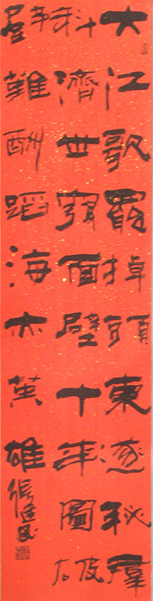 大江歌罷掉頭東邃秘羣
科濟世窮面壁十年圖破
壁難酬蹈海亦英雄